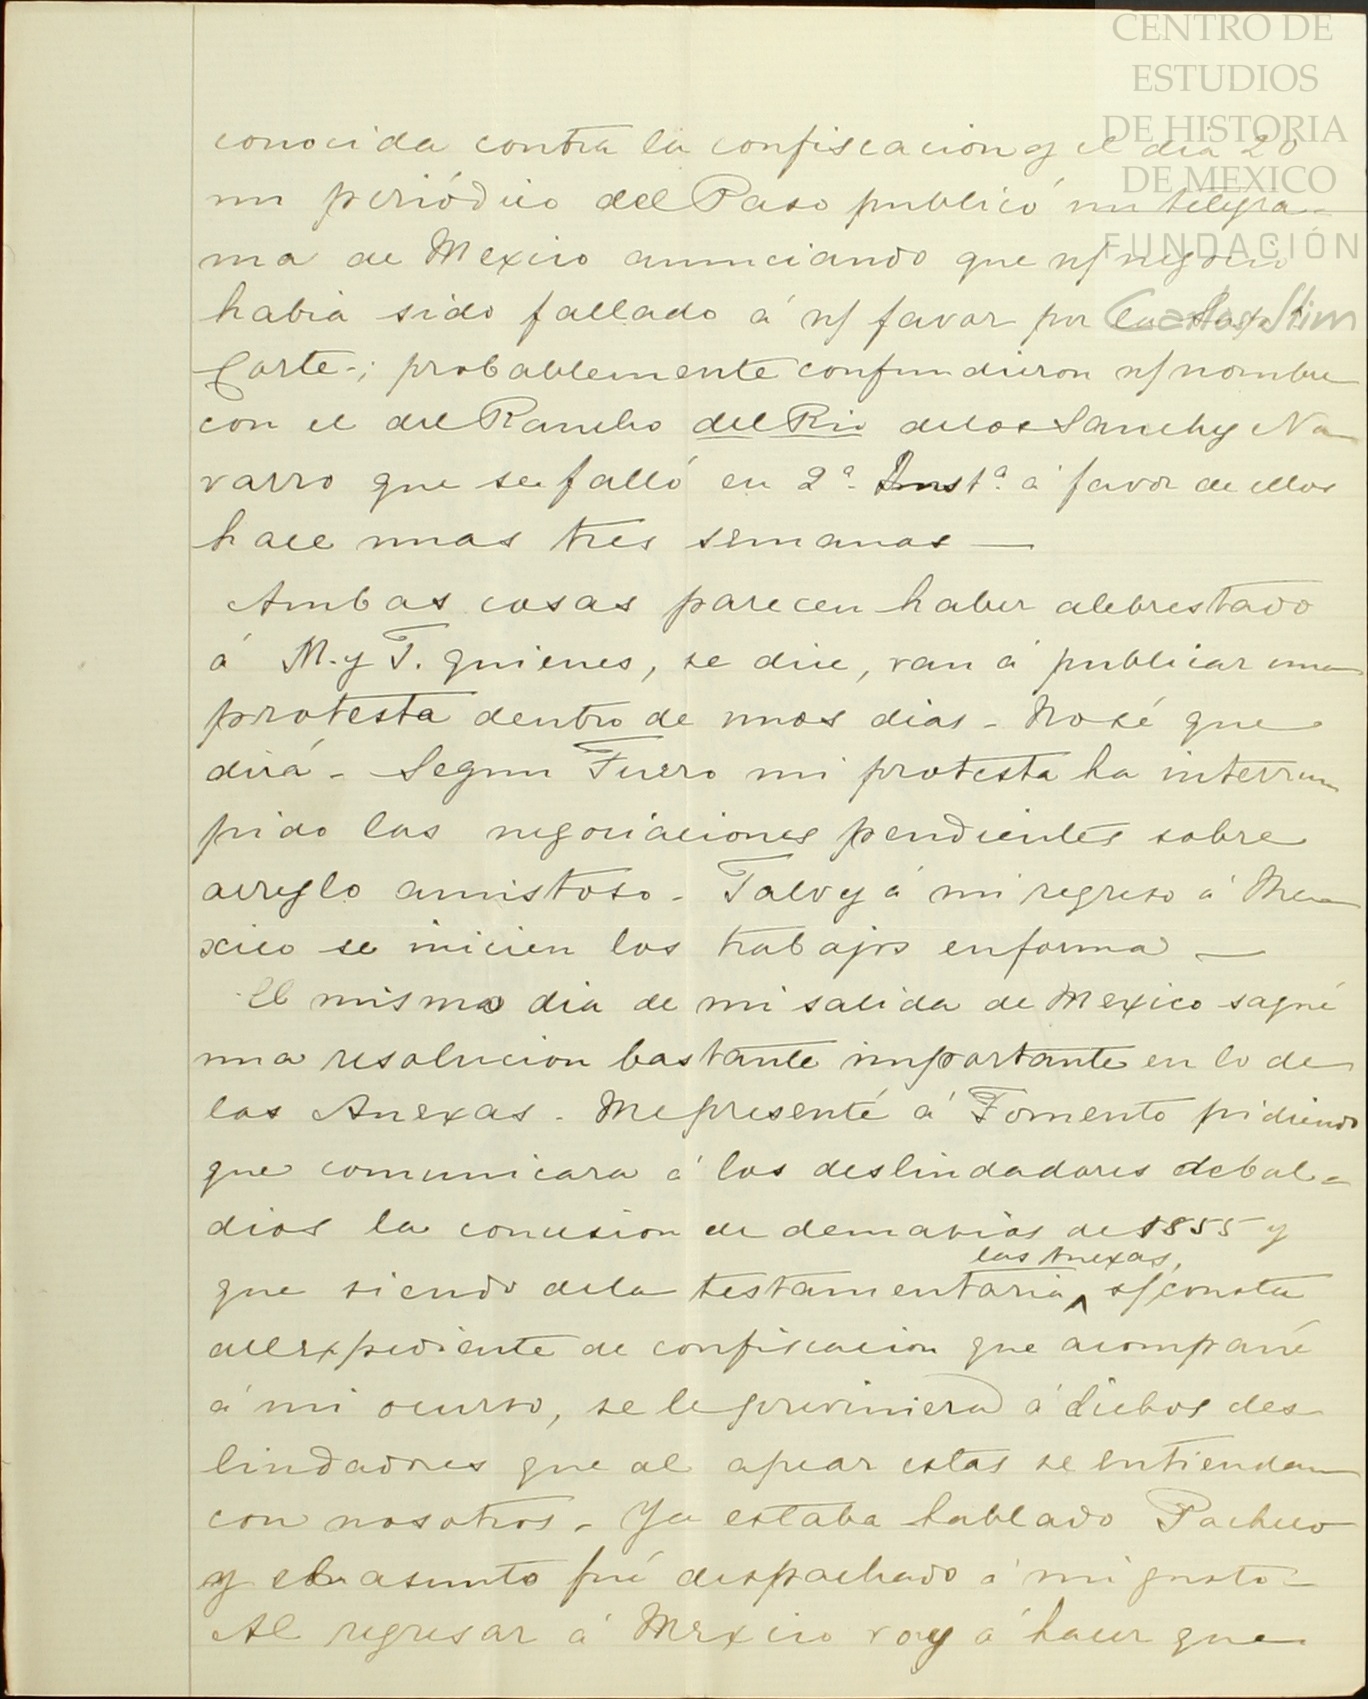 CENTRO DE
ESTUDIOS
DE HISTORIA
DE MEXICO
FUNDACIÓN
Carlos Slim
conocida contra la confiscacion y el dia 20
un periódico del Paso publicó un telegra-
ma de Mexico anunciando que n/ negocio
habia sido fallado á n/ favor por la
Corte-; probablemente confundieron n/ nombre
con el del Rancho del Rio de los Sanchez Na
varro que se falló en 2ª Instª á favor de ellos
hace unas tres semanas —
Ambas cosas parecen haber alebrestado
á M. y T. quienes, se dice, van á publicar una
protesta dentro de unos dias - No sé que
dirá - Segun Fuero mi protesta ha interrum
pido las negociaciones pendientes sobre
arreglo amistoso - Talvez á mi regreso á Me-
xico se inicien los trabajos en forma —
El mismo dia de mi salida de Mexico saqué
una resolucion bastante importante en lo de
las Anexas - Me presenté á Fomento pidiendo
que comunicara á los deslindadores de bal-
dios la concesion de demasias de 1855 y
que siendo de la testamentaria las Anexas, s/ consta
del expediente de confiscacion que acompañé
á mi ocurso, se le previniera á dichos des
lindadores que al apear estas se entiendan
con nosotros - Ya estaba hablado Pacheco
y el asunto fué despachado á mi gusto -
Al regresar á Mexico voy á hacer que